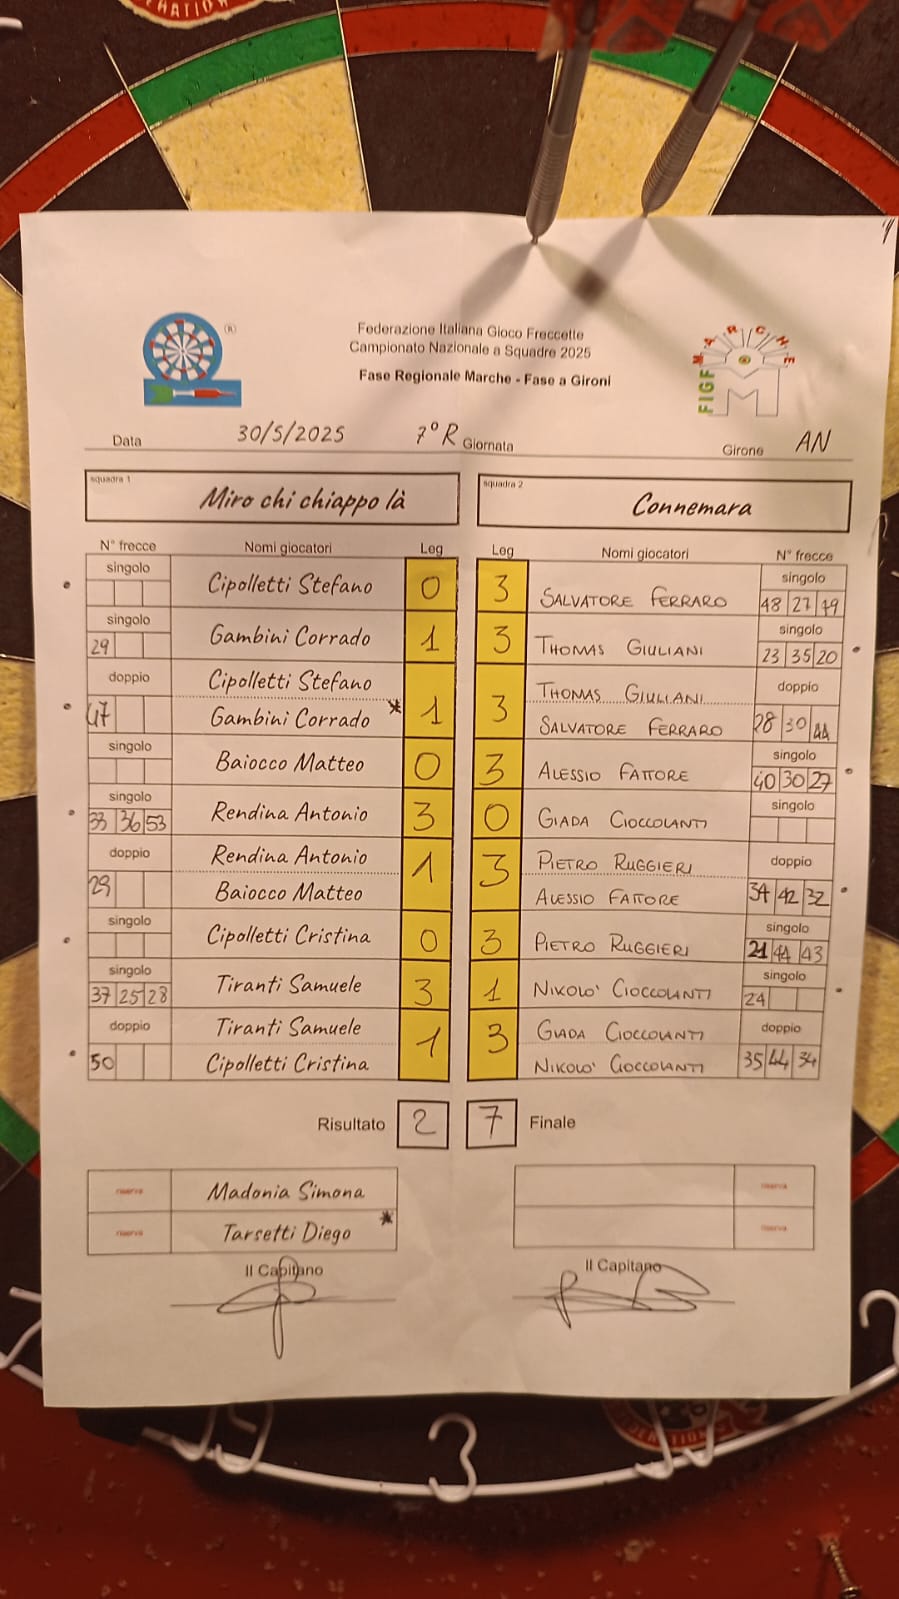 ERATION
Federazione Italiana Gioco Freccette
Campionato Nazionale a Squadre 2025
Fase Regionale Marche - Fase a Gironi
®
MARCHE
FIGF
M
Data 30/5/2025 7° R Giornata Girone AN
squadra 1 Miro chi chiappo là
squadra 2 Connemara
N° frecce Nomi giocatori Leg Leg Nomi giocatori N° frecce
singolo Cipolletti Stefano 0 3 SALVATORE FERRARO singolo 48 27 49
singolo 29 Gambini Corrado 1 3 THOMAS GIULIANI singolo 23 35 20
doppio Cipolletti Stefano THOMAS GIULIANI doppio
47 Gambini Corrado * 1 3 SALVATORE FERRARO 28 30 44
singolo Baiocco Matteo 0 3 ALESSIO FATTORE singolo 40 30 27
singolo 33 36 53 Rendina Antonio 3 0 GIADA CIOCCOLANTI singolo
doppio Rendina Antonio 1 3 PIETRO RUGGIERI doppio
29 Baiocco Matteo ALESSIO FATTORE 34 42 32
singolo Cipolletti Cristina 0 3 PIETRO RUGGIERI singolo 21 44 43
singolo 37 25 28 Tiranti Samuele 3 1 NIKOLO' CIOCCOLANTI singolo 24
doppio Tiranti Samuele 1 3 GIADA CIOCCOLANTI doppio
50 Cipolletti Cristina NIKOLO' CIOCCOLANTI 35 44 34
Risultato 2 7 Finale
riserva Madonia Simona riserva
riserva Tarsetti Diego * riserva
Il Capitano Il Capitano
3